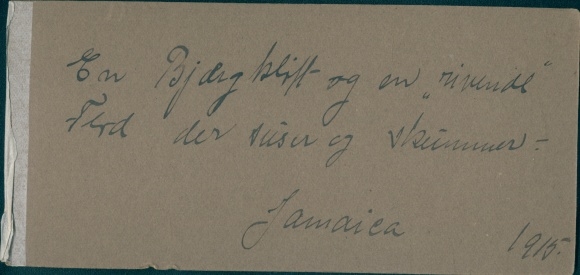 En Bjærgkløft og en „rivende"
Flod der suser og skummer -
Jamaica
1915.